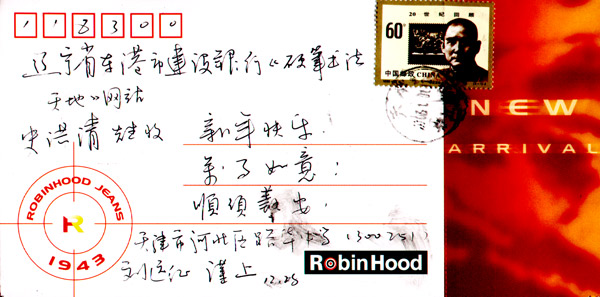 118300
辽宁省东港市建设银行《硬笔书法
天地》网站
史洪清 雄收
新年快乐
万事如意:
顺颂
天津市河北区 300251
谨上
12.25
60分
20世纪回顾
中国邮政 CHINA
NEW
ARRIVAL
ROBINHOOD JEANS
R
1943
RobinHood